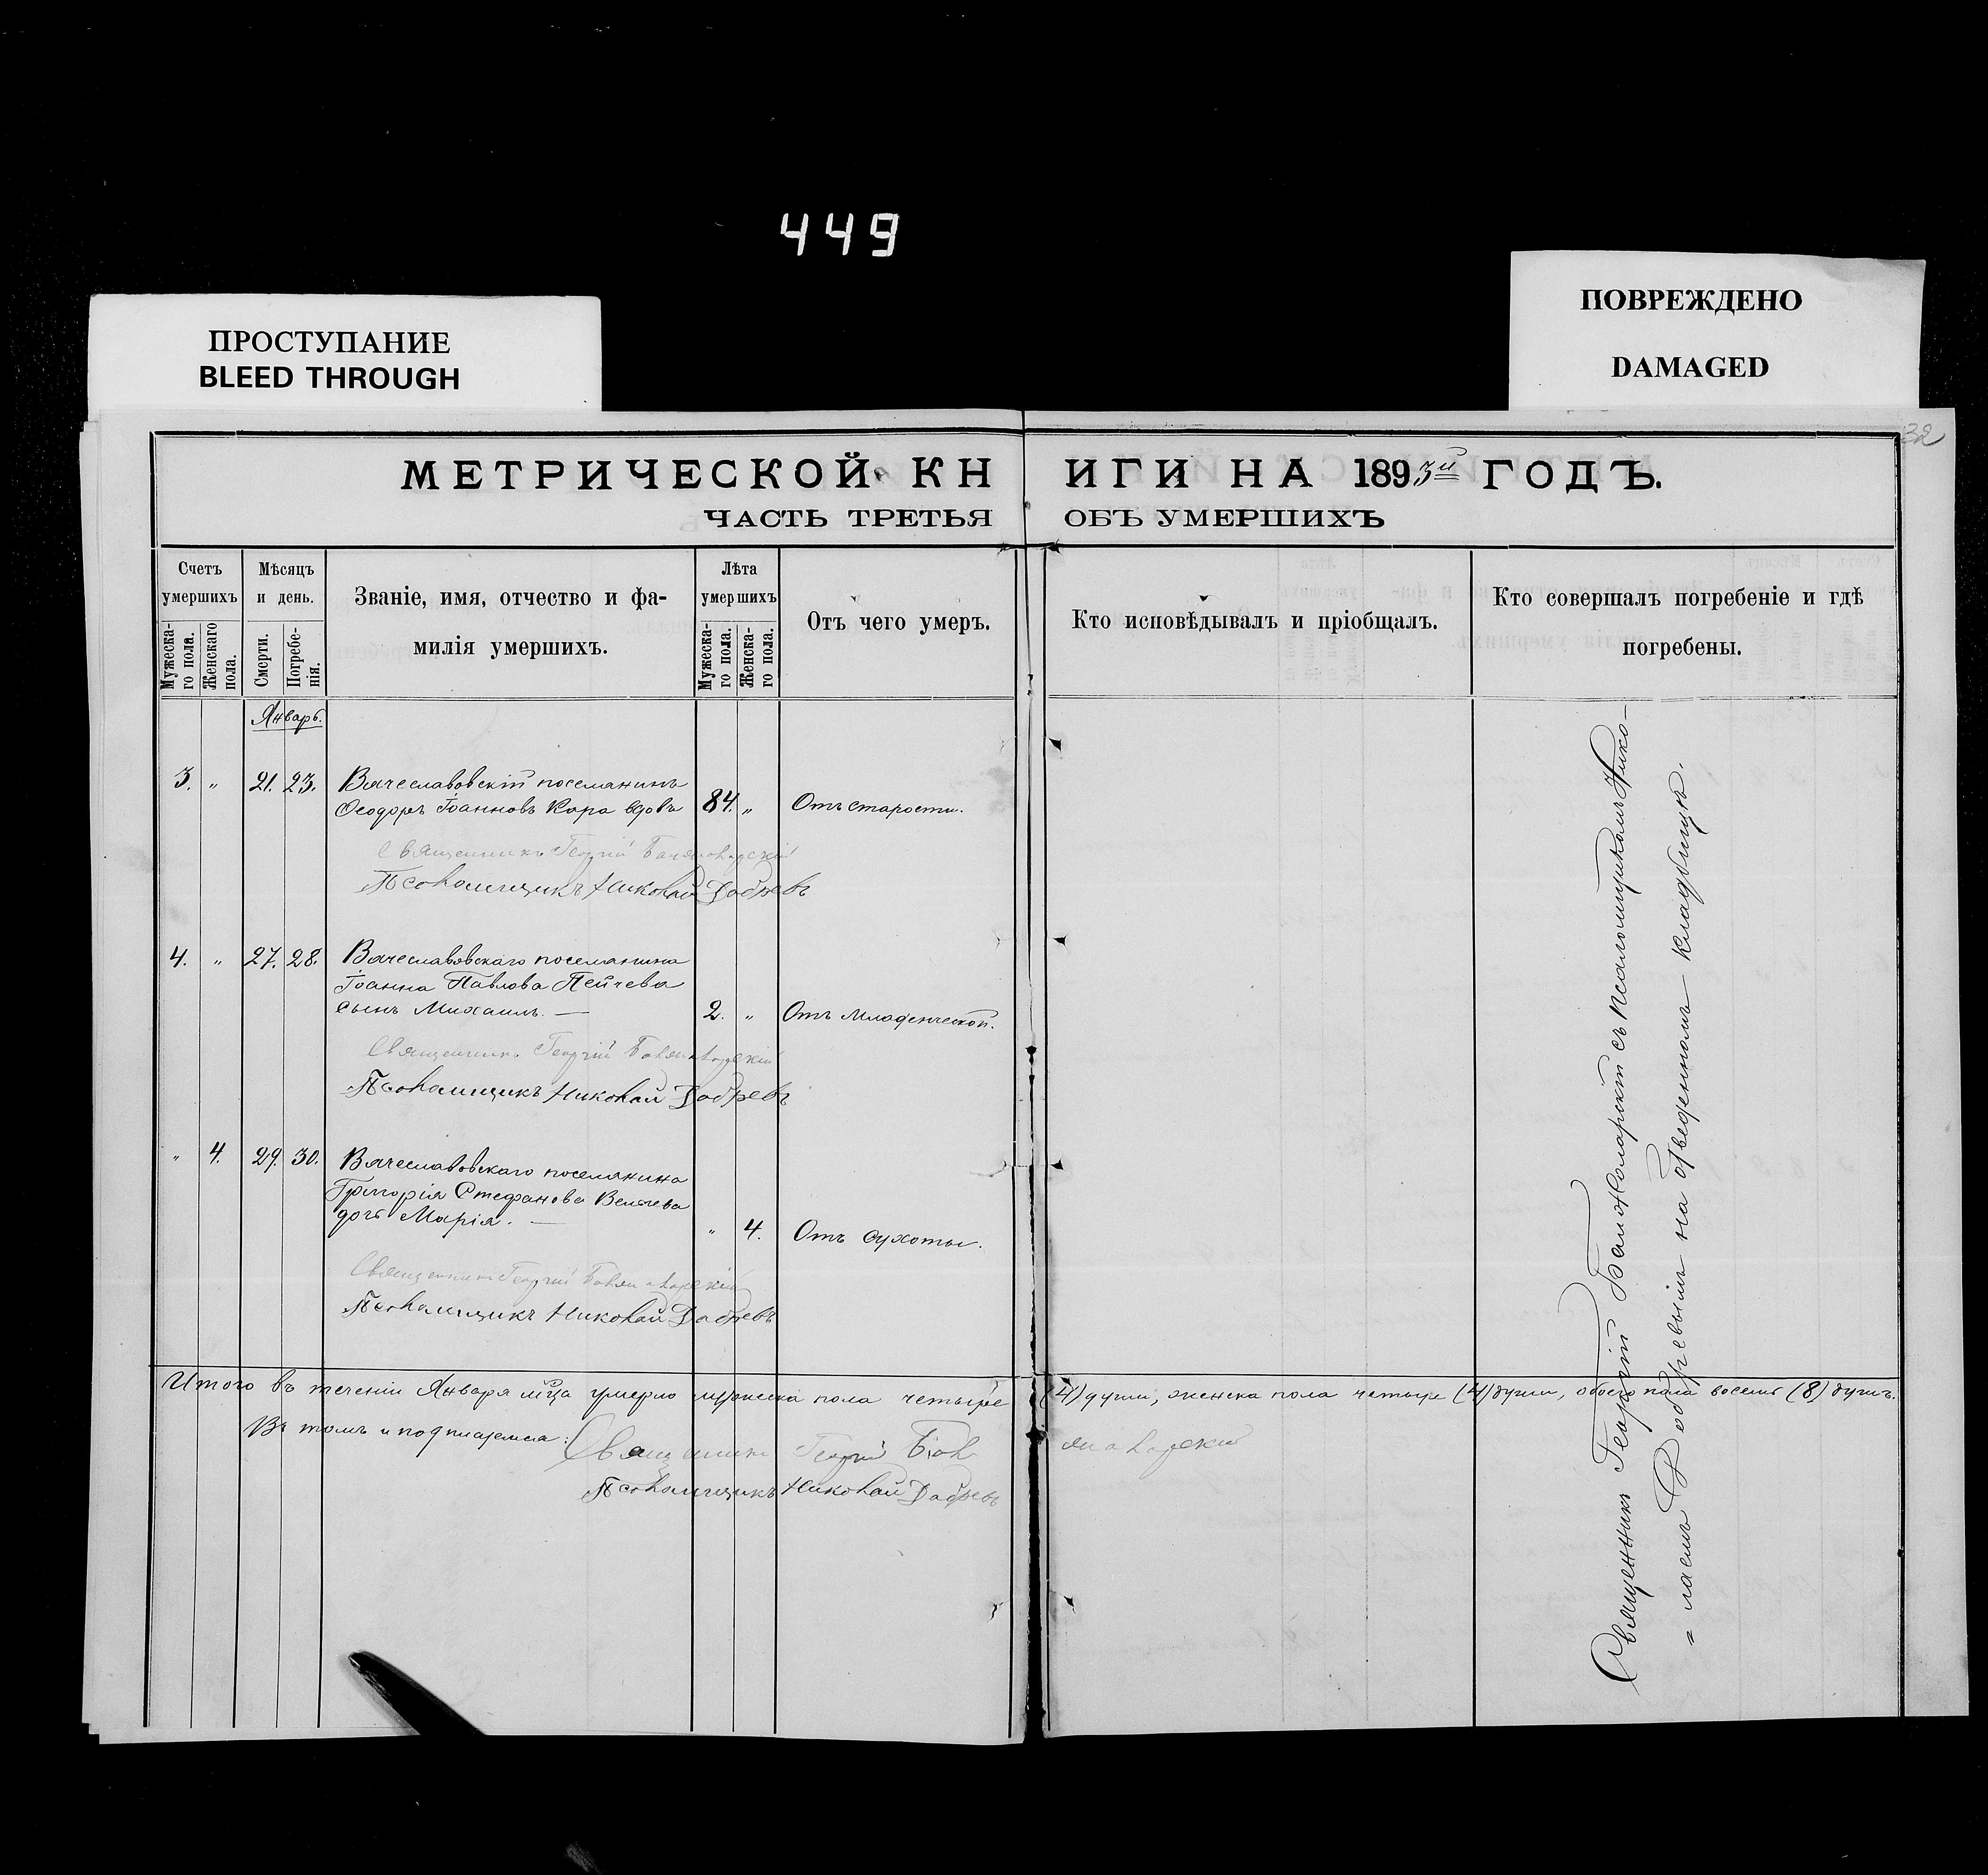 449
ПРОСТУПАНИЕ
BLEED THROUGH
ПОВРЕЖДЕНО
DAMAGED
32
МЕТРИЧЕСКОЙ КНИГИ НА 1893й ГОДЪ.
ЧАСТЬ ТРЕТЬЯ ОБЪ УМЕРШИХЪ
Счетъ умершихъ
Мужеска-го пола.
Женскаго пола.
Мѣсяцъ и день.
Смерти.
Погребе-нія.
Званіе, имя, отчество и фа-
милія умершихъ.
Лѣта умершихъ
Мужеска-го пола.
Женска-го пола.
Отъ чего умеръ.
Кто исповѣдывалъ и пріобщалъ.
Кто совершалъ погребеніе и гдѣ
погребены.
Январь.
3. „ 21. 23. Вячеславовскій поселянинъ
Ѳеодоръ Іоанновъ Кара вдовъ 84. „ Отъ старости.
Священникъ Георгій
Псаломщикъ Николай Добревъ
4. „ 27. 28. Вячеславовскаго поселянина
Іоанна Павлова Пейчева
сынъ Михаилъ. — 2. „ Отъ младенческой.
Священникъ Георгій
Псаломщикъ Николай Добревъ
„ 4. 29. 30. Вячеславовскаго поселянина
Григорія Стефанова Велчева
дочь Марія. — „ 4. Отъ сухоты.
Священникъ Георгій
Псаломщикъ Николай Добревъ
Итого въ теченіи Января мца умерло мужеска пола четыре (4) души, женска пола четыре (4) души, обоего пола восемь (8) душъ.
Въ томъ и подписуемся: Священникъ Георгій
Псаломщикъ Николай Добревъ
Священникъ Георгій съ псаломщикомъ Нико-
лаемъ Добревымъ на отведенномъ кладбищѣ.